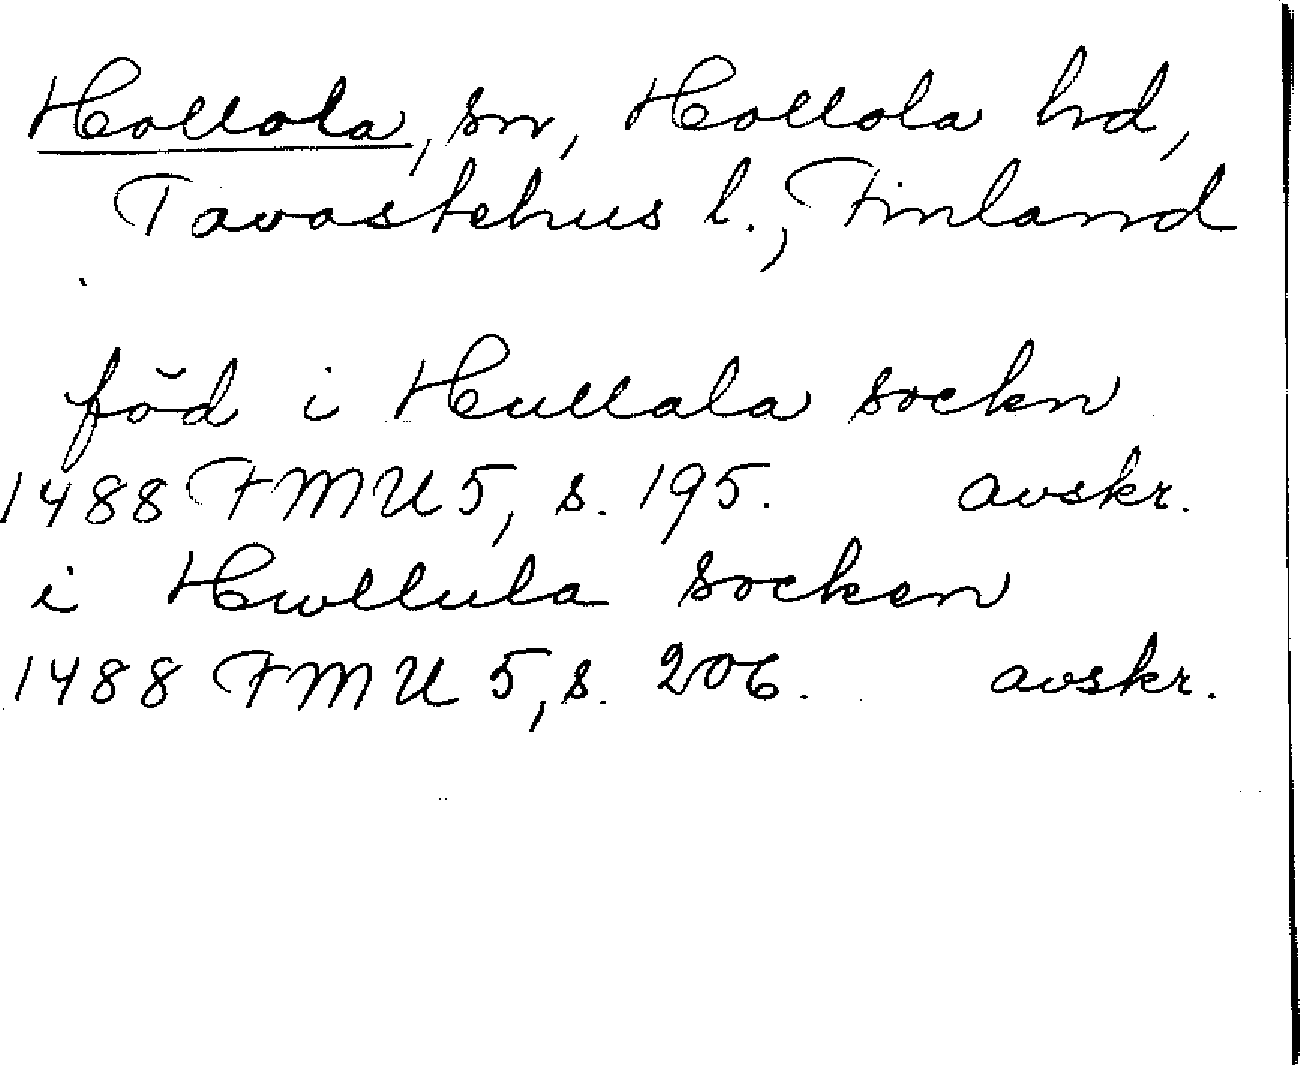 Hollola, sn, Hollola hd,
Tavastehus l., Finland
född i Hullala sockn
1488 FMU 5, s. 195. avskr.
i Hwllula socken
1488 FMU 5, s. 206. avskr.